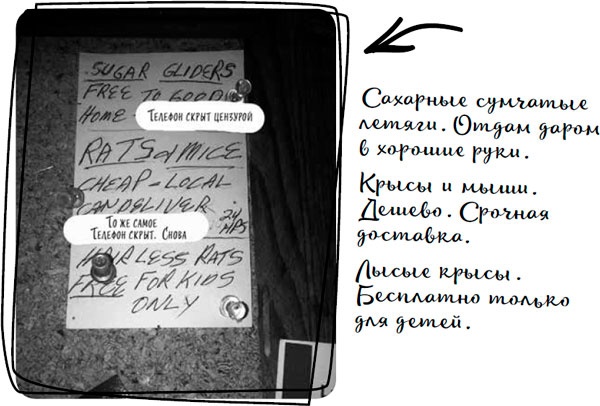 SUGAR GLIDERS
FREE TO GOOD
HOME
ТЕЛЕФОН СКРЫТ ЦЕНЗУРОЙ
RATS & MICE
CHEAP - LOCAL
CAN DELIVER 24
HRS
ТО ЖЕ САМОЕ
ТЕЛЕФОН СКРЫТ. СНОВА
HAIRLESS RATS
FREE FOR KIDS
ONLY
Сахарные сумчатые
летяги. Отдам даром
в хорошие руки.
Крысы и мыши.
Дешево. Срочная
доставка.
Лысые крысы.
Бесплатно только
для детей.